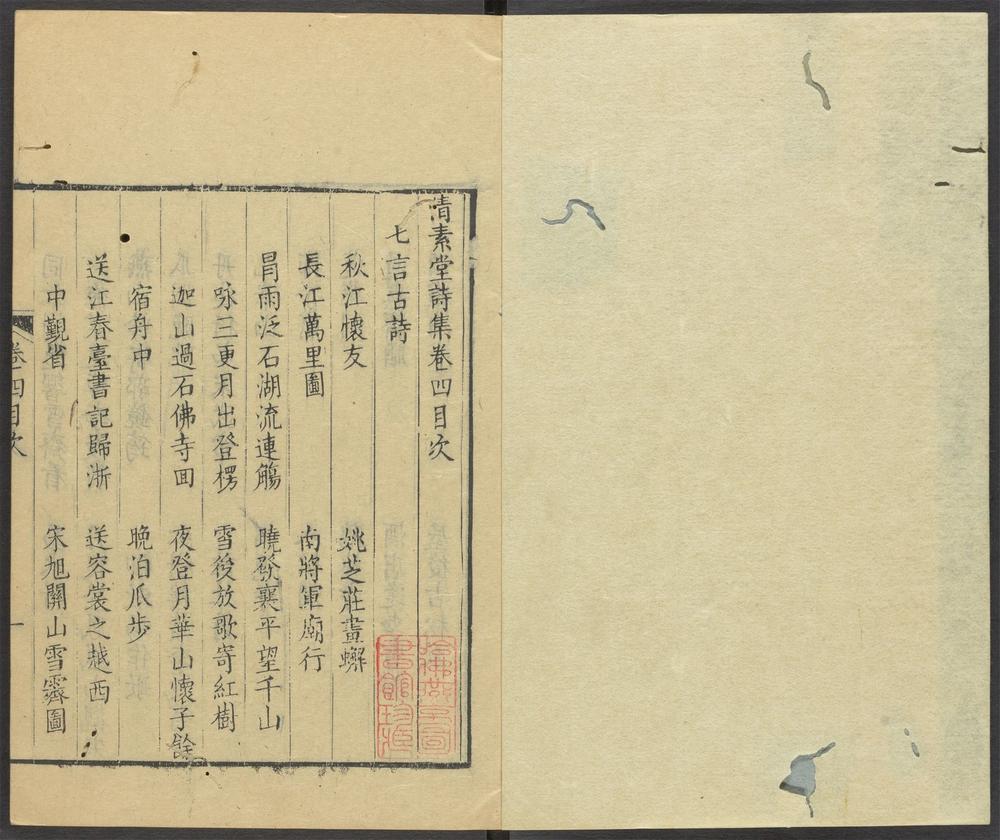 清素堂詩集卷四目次
七言古詩
秋江懷友　姚芝莊畫蠏
長江萬里圖　南將軍廟行
冐雨泛石湖流連觴　曉發襄平望千山
咏三更月出登楞　雪後放歌寄紅樹
迦山過石佛寺囬　夜登月華山懷子餘
宿舟中　晚泊瓜步
送江春臺書記歸浙　送容裳之越西
中觀省　宋旭關山雪霽圖
卷四目次　一
哈佛燕京圖書館珍藏